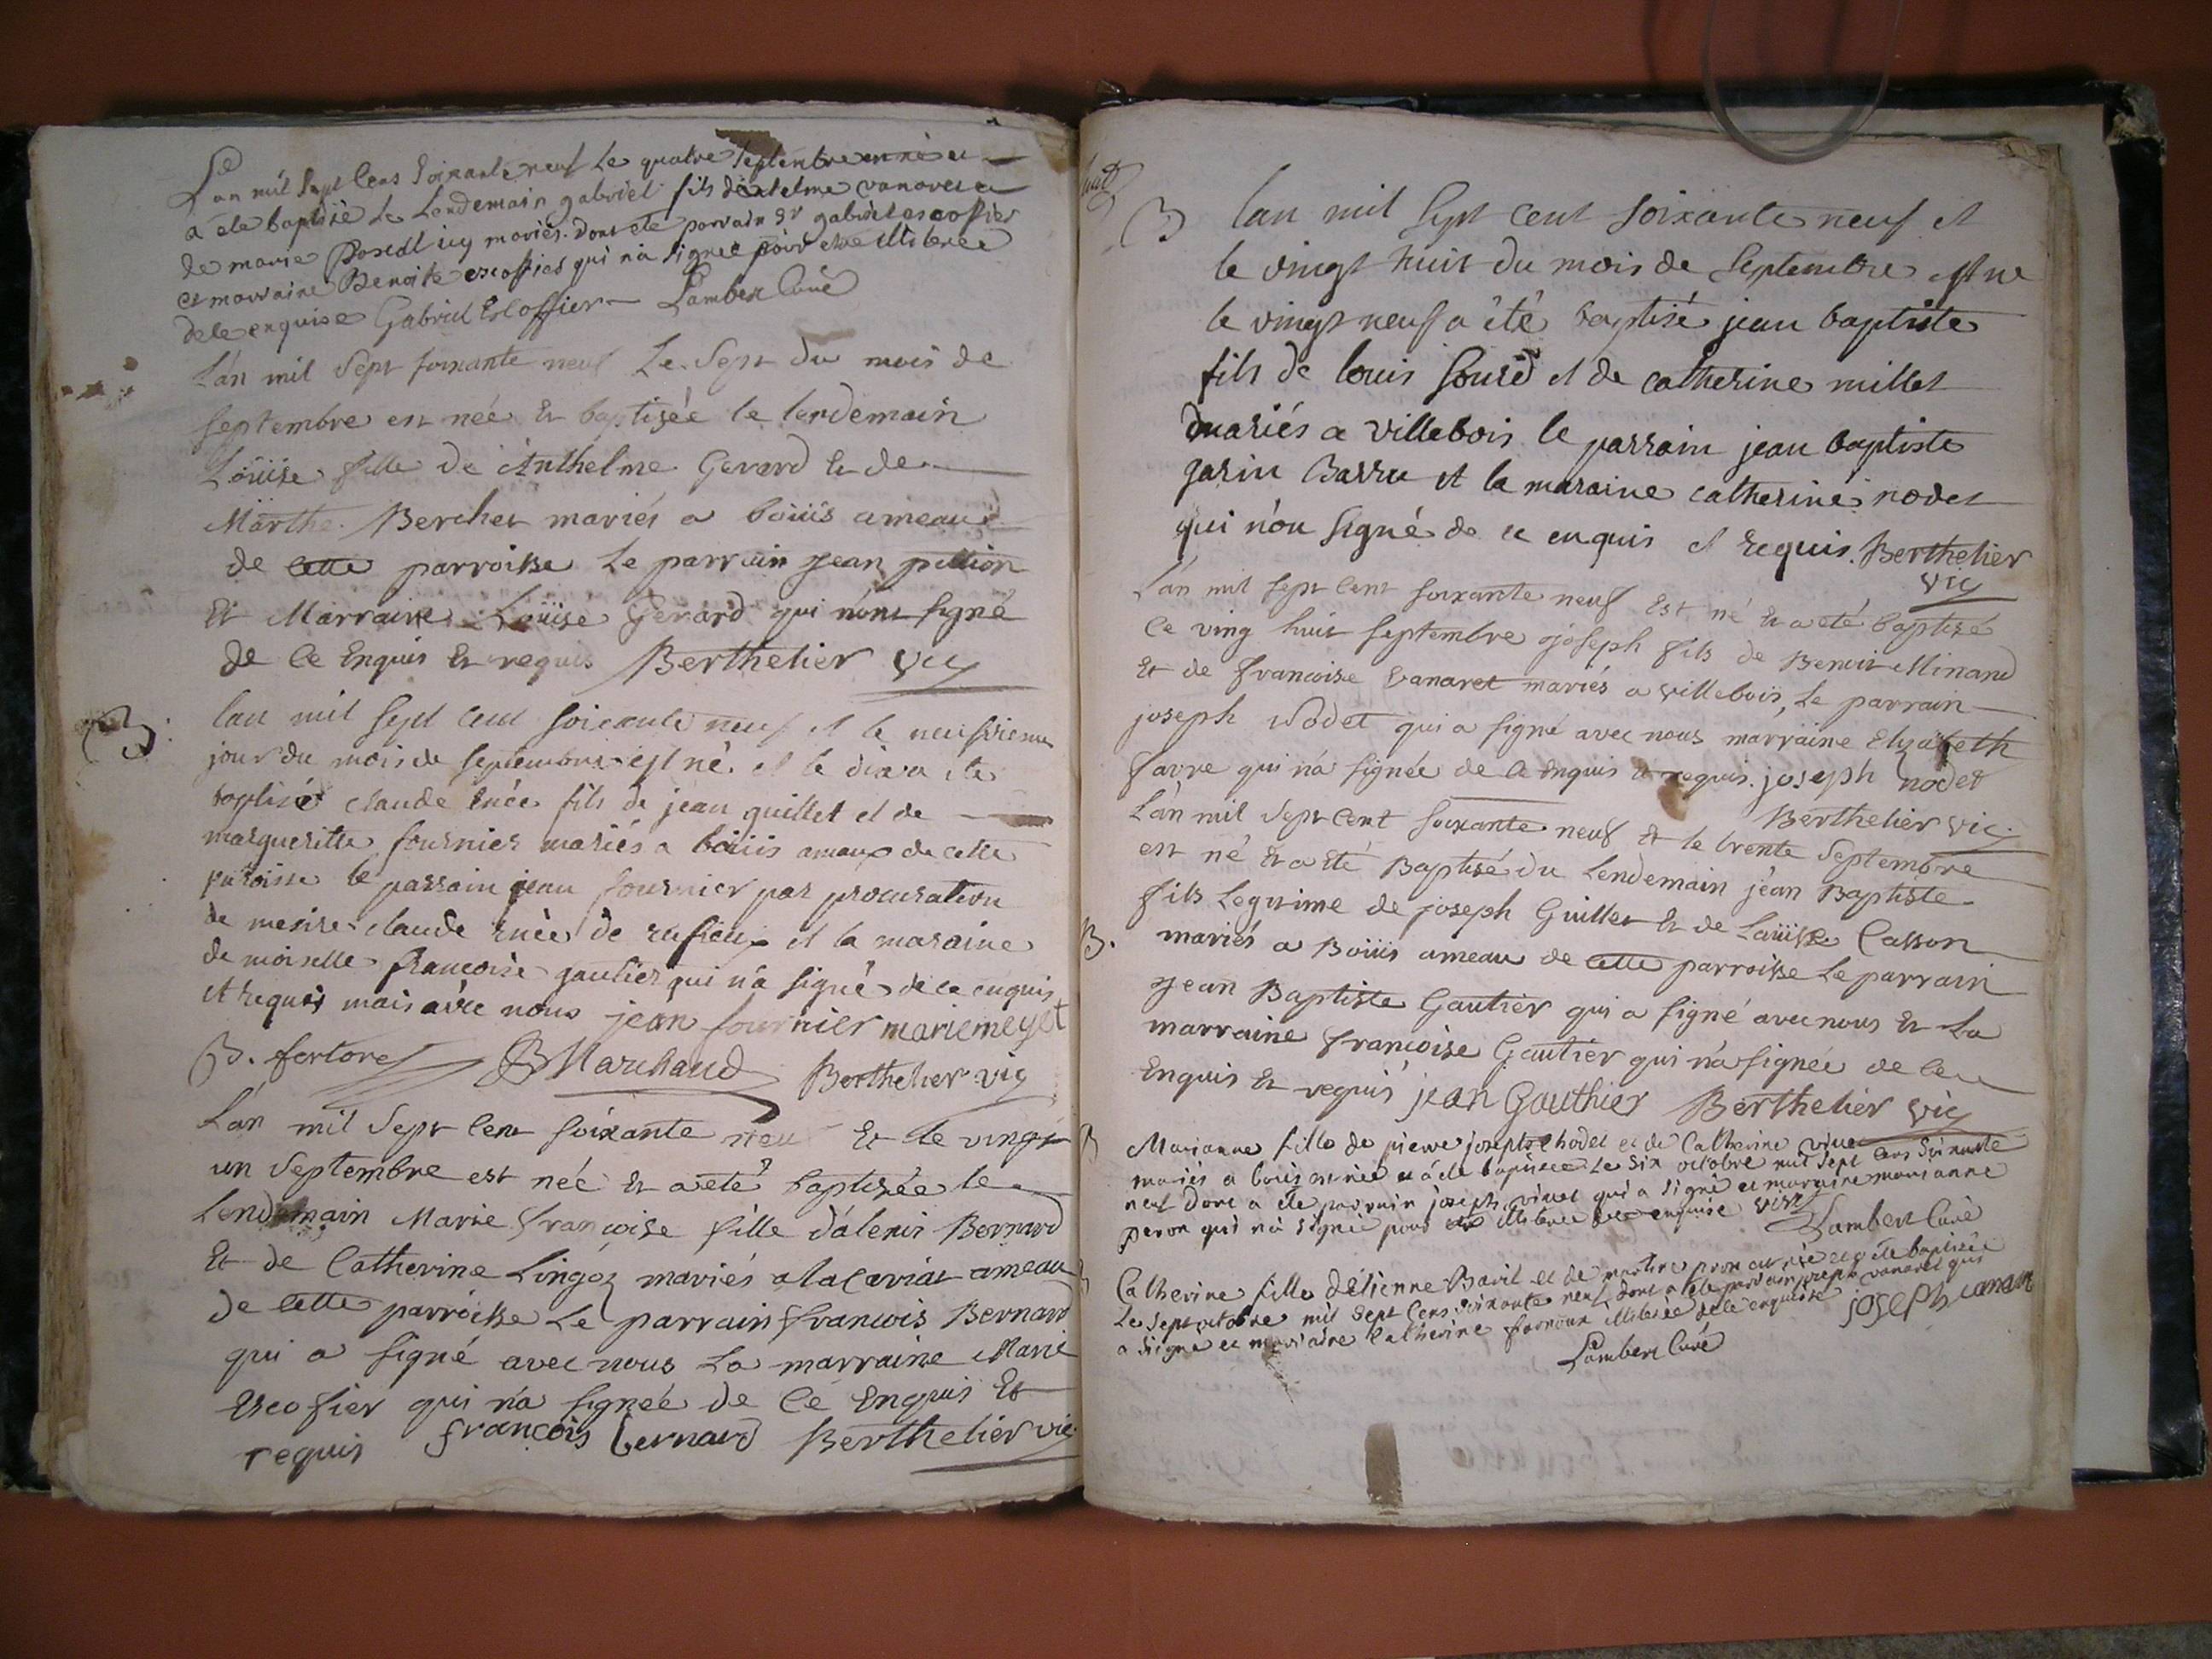 L'an mil sept cens soixante neuf le quatre septembre est né et
a été baptisé le lendemain gabriel fils d'antelme vanaret et
de marie mariés dont été parrain sr gabriel escoffier
et marraine Benoite escoffier qui n'a signeé pour etre illiterée
de ce enquise Gabriel Escoffier Lambert Curé
L'an mil Sept soixante neuf Le Sept du mois de
septembre est née Et baptisée le lendemain
Loüise fille de Anthelme Gerard Et de
Marthe Berchet mariés a boüis ameau
de cette parroisse Le parrain jean pillion
Et Marraine Loüise Gerard qui n'ont signé
de ce Enquis Et requis Berthelier vic
B. lan mil sept cent soixante neuf et le neufvieme
jour du mois de septembre est né et le dix a ete
baptisé claude enée fils de jean guillet et de
margueritte fournier mariés a boüis amaux de cette
paroisse le parrain jean fournier par procuration
de mesire claude enée de rufieu et la maraine
de moiselle francoise gautier qui n'a signé de ce enquis
et requis mais avec nous jean fournier marie meget
B. fortoret Marchand Berthelier vic
L'an mil Sept Cent soixante neuf Et le vingt
un Septembre est née Et a eté baptisée le
Lendemain Marie francoise fille d'alexis Bernard
Et de Catherine Lingoz mariés a ameau
de cette parroisse Le parrain francois Bernard
qui a signé avec nous La marraine Marie
Escofier qui n'a signeé de Ce Enquis Et
requis françois bernard Berthelier vic
B lan mil Sept Cent soixante neuf et
le vingt huit du mois de Septembre est ne
le vingt neuf a été baptisé jean baptiste
fils de louis sourd et de catherine millet
mariés a villebois le parrain jean baptiste
garin Barru et la maraine catherine nodet
qui n'on signé de ce enquis et requis. Berthelier
vic
L'an mil sept cent soixante neuf Est né Et a été baptisé
le ving huit septembre joseph fils de Benoit Minand
Et de francoise vanaret mariés a villebois, Le parrain
joseph Nodet qui a signé avec nous marraine Elizabeth
favre qui n'a signée de ce enquis et requis. joseph nodet
Berthelier vic.
L'an mil Sept Cent soixante neuf Et le trente Septembre
est né Et a Eté Baptisé du Lendemain jean Baptiste
fils Legitime de joseph Guillet Et de Loüise Casson
B. mariés a Boüis ameau de cette parroisse Le parrain
jean Baptiste Gautier qui a signé avec nous Et La
marraine francoise Gautier qui n'a signée de ce
Enquis Et requis jean Gauthier Berthelier vic
B Marianne fille de pierre joseph et de Catherine vivet
mariés a boüis est née et a été baptisée Le six octobre mil sept cens soixante
neuf dont a été parrain joseph vivet qui a signé et marraine marianne
peron qui n'a signée pour etre illiterée de ce enquise vivet
Lambert Curé
Catherine fille d'étienne Bavit et de marthe est née et a été baptisée
Le sept octobre mil sept cens soixante neuf dont a été parrain joseph vanaret qui
a signé et marraine Catherine illiterée de ce enquise joseph vanaret
Lambert Curé